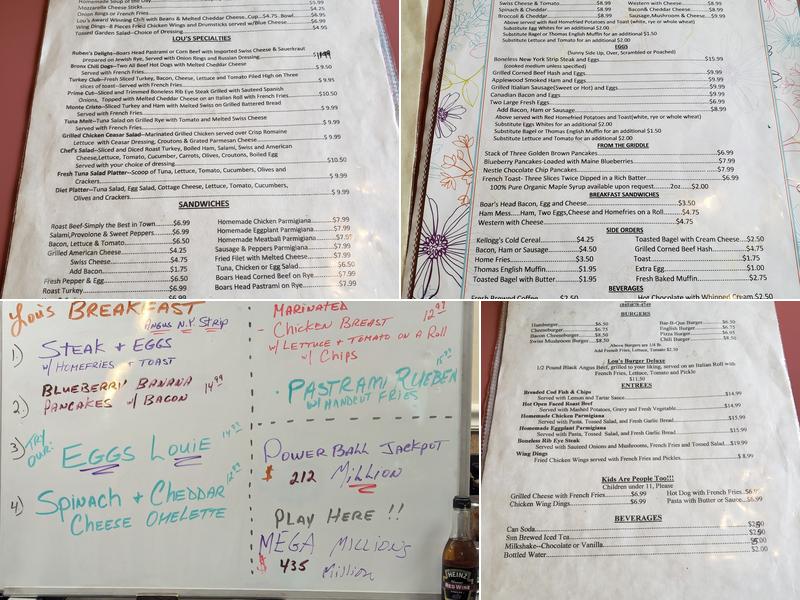 Homemade Soup of the Day
Mozzarella Cheese Sticks $4.25
Onion Rings or French Fries
Lou's Award Winning Chili with Beans & Melted Cheddar Cheese Cup...$4.75..Bowl $6.95
Wing Dings-8 Pieces Fried Chicken Wings and Drumsticks served w/Blue Cheese $6.99
Tossed Garden Salad-Choice of Dressing $4.95
LOU'S SPECIALTIES
Ruben's Delight-Boars Head Pastrami or Corn Beef with Imported Swiss Cheese & Sauerkraut
prepared on Jewish Rye, Served with Onion Rings and Russian Dressing
Bronx Chili Dogs-Two All Beef Hot Dogs with Melted Cheddar Cheese $ 9.50
Served with French Fries
Turkey Club-Fresh Sliced Turkey, Bacon, Cheese, Lettuce and Tomato Piled High on Three
slices of toast-Served with French Fries $ 9.95
Prime Cut-Sliced and Trimmed Boneless Rib Eye Steak Grilled with Sauteed Spanish
Onions, Topped with Melted Cheddar Cheese on an Italian Roll with French Fries $10.50
Monte Cristo-Sliced Turkey and Ham with Melted Swiss on Grilled Battered Bread
Served with French Fries $ 9.99
Tuna Melt-Tuna Salad on Grilled Rye with Tomato and Melted Swiss Cheese
Served with French Fries $ 9.99
Grilled Chicken Ceasar Salad-Marinated Grilled Chicken served over Crisp Romaine
Lettuce with Ceasar Dressing, Croutons & Grated Parmesan Cheese $ 9.99
Chef's Salad-Sliced and Diced Roast Turkey, Boiled Ham, Salami, Swiss and American
Cheese,Lettuce, Tomato, Cucumber, Carrots, Olives, Croutons, Boiled Egg
Served with your choice of dressing $10.50
Fresh Tuna Salad Platter-Scoop of Tuna, Lettuce, Tomato, Cucumbers, Olives and
Crackers $ 9.99
Diet Platter-Tuna Salad, Egg Salad, Cottage Cheese, Lettuce, Tomato, Cucumbers,
Olives and Crackers $ 9.99
SANDWICHES
Roast Beef-Simply the Best in Town $6.99
Salami,Provolone & Sweet Peppers $6.99
Bacon, Lettuce & Tomato $6.50
Grilled American Cheese $4.25
Swiss Cheese $4.75
Add Bacon $1.75
Fresh Pepper & Egg $6.50
Roast Turkey $6.99
Homemade Chicken Parmigiana $7.99
Homemade Eggplant Parmigiana $7.99
Homemade Meatball Parmigiana $7.99
Sausage & Peppers Parmigiana $7.99
Fried Filet with Melted Cheese $7.99
Tuna, Chicken or Egg Salad $6.50
Boars Head Corned Beef on Rye $7.99
Boars Head Pastrami on Rye $7.99
Swiss Cheese & Tomato $8.99
Spinach & Cheddar $8.99
Broccoli & Cheddar $8.99
Western with Cheese $8.99
Bacon& Cheddar Cheese $8.99
Sausage,Mushroom & Cheese $9.99
Above served with Red Homefried Potatoes and Toast (white, rye or whole wheat)
Substitute Egg Whites for an additional $2.00
Substitute Bagel or Thomas English Muffin for an additional $1.50
Substitute Lettuce and Tomato for an additional $2.00
EGGS
(Sunny Side Up, Over, Scrambled or Poached)
Boneless New York Strip Steak and Eggs $15.99
(cooked medium unless specified)
Grilled Corned Beef Hash and Eggs $9.99
Applewood Smoked Ham and Eggs $9.99
Grilled Italian Sausage(Sweet or Hot) and Eggs $9.99
Canadian Bacon and Eggs $9.99
Two Large Fresh Eggs $6.99
Add Bacon, Ham or Sausage $8.99
Above served with Red Homefried Potatoes and Toast(white, rye or whole wheat)
Substitute Eggs Whites for an additional $2.00
Substitute Bagel or Thomas English Muffin for additional $1.50
Substitute Lettuce and Tomato for $2.00
FROM THE GRIDDLE
Stack of Three Golden Brown Pancakes $6.99
Blueberry Pancakes-Loaded with Maine Blueberries $7.99
Nestle Chocolate Chip Pancakes $7.99
French Toast- Three Slices Twice Dipped in a Rich Batter $6.99
100% Pure Organic Maple Syrup available upon request 2oz $2.00
BREAKFAST SANDWICHES
Boar's Head Bacon, Egg and Cheese $3.50
Ham Mess.....Ham, Two Eggs,Cheese and Homefries on a Roll $4.75
Western with Cheese $4.75
SIDE ORDERS
Kellogg's Cold Cereal $4.25
Bacon, Ham or Sausage $4.50
Home Fries $3.50
Thomas English Muffin $1.95
Toasted Bagel with Butter $1.95
Toasted Bagel with Cream Cheese $2.50
Grilled Corned Beef Hash $4.75
Toast $1.75
Extra Egg $1.00
Fresh Baked Muffin $2.75
BEVERAGES
Fresh Brewed Coffee
Hot Chocolate with Whipped Cream $2.50
Lou's BREAKFAST
ANGUS N.Y. STRIP
1) STEAK + EGGS
W/ HOMEFRIES + TOAST
2) BLUEBERRY BANANA
PANCAKES W/ BACON 14.99
3) TRY OUR: EGGS LOUIE
4) SPINACH + CHEDDAR
CHEESE OMELETTE
MARINATED
- CHICKEN BREAST 12.99
W/ LETTUCE + TOMATO ON A ROLL
W/ CHIPS
· PASTRAMI RUEBEN
W/ HANDCUT FRIES
POWERBALL JACKPOT
$ 212 MILLION
PLAY HERE !!
MEGA MILLION'S
$ 435 Million
HEINZ
RED WINE
BURGERS
Hamburger $6.50
Cheeseburger $6.75
Bacon Burger $8.50
Swiss Mushroom Burger $8.50
Bar-B-Que Burger $6.50
English Burger $6.75
Pizza Burger $6.95
Chili Burger $8.50
Above Burgers are 1/4 lb.
Add French Fries, Lettuce, Tomato $2.50
Lou's Burger Deluxe
1/2 Pound Black Angus Beef, grilled to your liking, served on an Italian Roll with
French Fries, Lettuce, Tomato and Pickle
$11.50
ENTREES
Breaded Cod Fish & Chips
Served with Lemon and Tartar Sauce $14.99
Hot Open Faced Roast Beef
Served with Mashed Potatoes, Gravy and Fresh Vegetable $14.99
Homemade Chicken Parmigiana
Served with Pasta, Tossed Salad, and Fresh Garlic Bread $15.99
Homemade Eggplant Parmigiana
Served with Pasta, Tossed Salad, and Fresh Garlic Bread $15.99
Boneless Rib Eye Steak
Served with Sauteed Onions and Mushrooms, French Fries and Tossed Salad $19.99
Wing Dings
Fried Chicken Wings served with French Fries and Pickles $ 8.99
Kids Are People Too!!!
Children under 11, Please
Grilled Cheese with French Fries $6.99
Chicken Wing Dings $6.99
Hot Dog with French Fries
Pasta with Butter or Sauce $6.99
BEVERAGES
Can Soda
Sun Brewed Iced Tea
Milkshake--Chocolate or Vanilla
Bottled Water $2.00